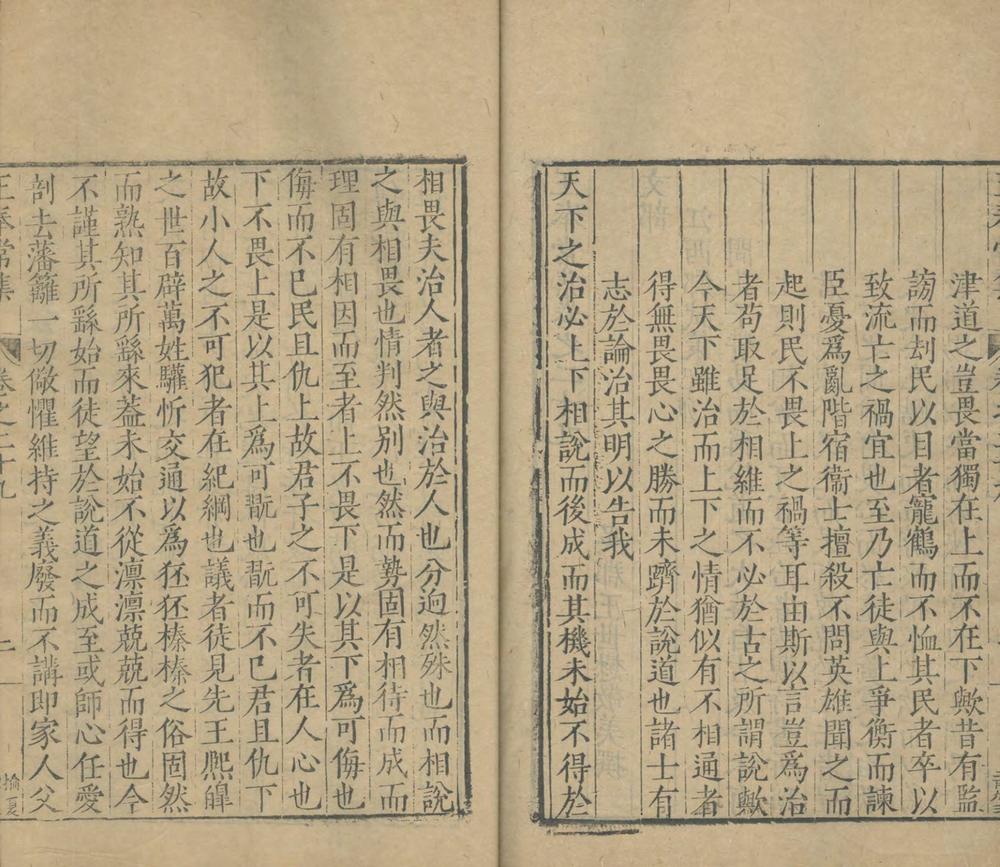 津道之豈畏當獨在上而不在下歟昔有監
謗而刦民以目者寵鶴而不恤其民者卒以
致流亡之禍宜也至乃亡徒與上爭衡而諫
臣憂爲亂階宿衞士擅殺不問英雄聞之而
起則民不畏上之禍等耳由斯以言豈爲治
者茍取足於相維而不必於古之所謂說歟
今天下雖治而上下之情猶似有不相通者
得無畏畏心之勝而未躋於說道也諸士有
志於論治其明以告我
天下之治必上下相說而後成而其機未始不得於
相畏夫治人者之與治於人也分逈然殊也而相說
之與相畏也情判然別也然而勢固有相待而成而
理固有相因而至者上不畏下是以其下爲可侮也
侮而不已民且仇上故君子之不可失者在人心也
下不畏上是以其上爲可翫也翫而不已君且仇下
故小人之不可犯者在紀綱也議者徒見先王熈皥
之世百辟萬姓驩忻交通以爲狉狉榛榛之俗固然
而熟知其所繇來蓋未始不從凛凛兢兢而得也今
不謹其所繇始而徒望於說道之成至或師心任愛
剖去藩籬一切儆懼維持之義廢而不講即家人父
王奉常集 卷之二十九 上